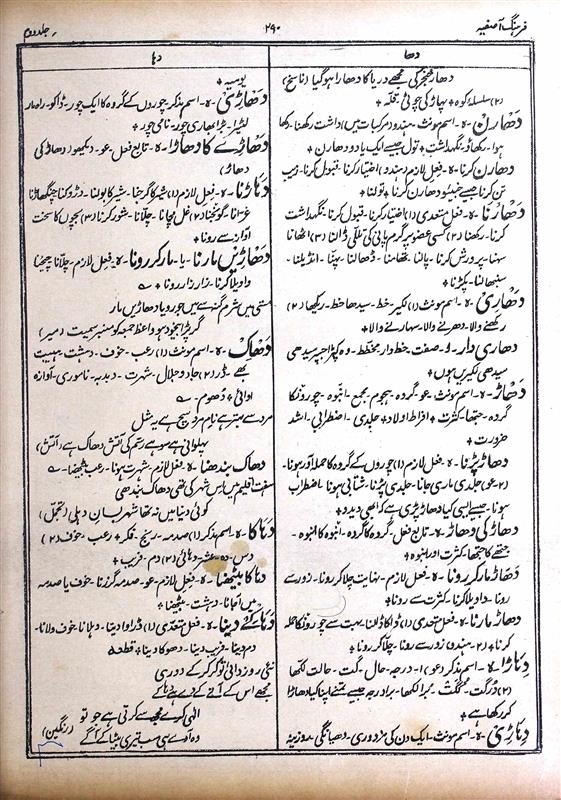 فرہنگ آصفیہ
۲۹۰
جلد دوم
دھا
دھار خنجر کی مجھے دریا کا دھارا ہوگیا (ناسخ)
(۲) سلسلۂ کوہ + پہاڑ کی چوٹی + قلّہ +
دھارن - ہ - اسم مونث - ہندو (مرکبات میں) داشت رکھنا - رکھا
ہوا - رکھاؤ - نگہداشت + تول جیسے ایک یا دو دھارن +
دھارن کرنا - ہ - فعل لازم (ہندو) اختیار کرنا - قبول کرنا - زیب
تن کرنا جیسے جنیئو دھارن کرنا + تولنا +
دھارنا - ہ - فعل متعدی (۱) اختیار کرنا - قبول کرنا - نگہداشت
کرنا - رکھنا (۲) کسی عضو پر گرم پانی کی تلّی ڈالنا (۳) اٹھانا
سہنا - پرورش کرنا - پالنا - تھامنا - ڈھالنا - پہننا - انڈیلنا -
سنبھالنا - پکڑنا +
دھاری - ہ - اسم مونث (۱) لکیر - خط - سیدھا خط - ریکھا (۲)
رکھنے والا - دھرنے والا - سہارنے والا +
دھاری دار - و - صفت - خط دار - مخطط - وہ کپڑا جس پر سیدھی
سیدھی لکیریں ہوں +
دھاڑ - ہ - اسم مونث - عو - گروہ - ہجوم - مجمع - انبوہ - چوروں کا
گروہ - جتھا - کثرت + افراط اولاد + جلدی - اضطرابی - اشد
ضرورت +
دھاڑ پڑنا - ہ - فعل لازم (۱) چوروں کے گروہ کا حملہ آور ہونا -
(۲ - عو) جلدی ماری جانا - جلدی پڑنا - شتابی ہونا - اضطراب
ہونا - جیسے ایسی کیا دھاڑ پڑی ہے کہ ابھی دیدو +
دھاڑ کی دھاڑ - ہ - تابع فعل - گروہ کا گروہ - انبوہ کا انبوہ -
جتھے کا جتھا - کثرت اور انبوہ +
دھاڑ مار کر رونا - ہ - فعل لازم - نہایت چلا کر رونا - زور سے
رونا - واویلا کرنا - کثرت سے رونا +
دھاڑ مارنا - ہ - فعل متعدی (۱) ڈاکا ڈالنا - بہت سے چوروں کا حملہ
کرنا + (۲ - ہندو) زور سے رونا - چلا کر رونا +
دہاڑا - ہ - اسم مذکر (عو) ۱ - درجہ - حال - گت - حالت لکھا
(۲) درگت - کُگت + بُرا لکھا - بُرا درجہ جیسے تمنے اپنا کیا دھاڑا
کر رکھا ہے +
دہاڑی - ہ - اسم مونث - ایک دن کی مزدوری - دھیانگی - روزینہ
دہا
یومیہ +
دھاڑی - ہ - اسم مذکر - چوروں کے گروہ کا ایک چور - ڈاکو - راہ مار
لٹیرا - بڑا بھاری چور - نامی چور +
دھاڑے کا دھاڑا - ہ - تابع فعل - عو - دیکھو (دھاڑ کی
دھاڑ)
دہاڑنا - ہ - فعل لازم (۱) شیر کا گرجنا - شیر کا بولنا - ڈڑوکنا چنگھاڑنا
غرّانا - گونجنا (۲) غل مچانا - چلّانا - شور کرنا (۳) بچوں کا سخت
آواز سے رونا +
دھاڑیں مارنا - یا - مار کر رونا - ہ - فعل لازم - چلّانا چیخنا
واویلا کرنا - زار زار رونا + ؎
مستی میں شرم گنہ سے میں جو رویا دھاڑیں مار
گر پڑا بیخود ہو واعظ جمعہ کو منبر سمیت (میر)
دھاک - ہ - اسم مونث (۱) رعب - خوف - دہشت - ہیبت
بھے - ڈر (۲) جاہ و جلال - شہرت - دبدبہ - ناموری - آوازہ
اوائی + دُھوم - ؎
مرد سے بہتر ہے نام مرد سچ ہے یہ مثل
پہلوانی ہے سو ہے رستم کی آتش دھاک ہے (آتش)
دھاک بندھنا - ہ - فعل لازم - شہرت ہونا - رعب بیٹھنا - ؎
ہفت اقلیم میں اس شہر کی تھی دھاک بندھی
کوئی دنیا میں نہ تھا شہر بسان دہلی (تجمل)
دہاکا - ہ - اسم مذکر (۱) صدمہ - رنج - فکر + رعب - خوف (۲)
دس - دہ - دہائی (۲) دم - فریب +
دہاکا بیٹھنا - ہ - فعل لازم - عو - صدمہ گزرنا - خوف یا صدمہ
میں آ جانا - دہشت - بیٹھنا +
دہاکے دینا - ہ - فعل متعدی (۱) ڈراوا دینا - دہلانا - خوف دلانا -
دم دینا - فریب دینا - دھوکا دینا + قطعہ
نئی روز دائی نوکر کر کے دوری
مجھے اس کے آتے کے دے ہے دہاکے
الٰہی کرے مجھ سے کرتی ہے جو تو
وہ آوے ہی سب تیری بیٹیا کے آگے (رنگین)